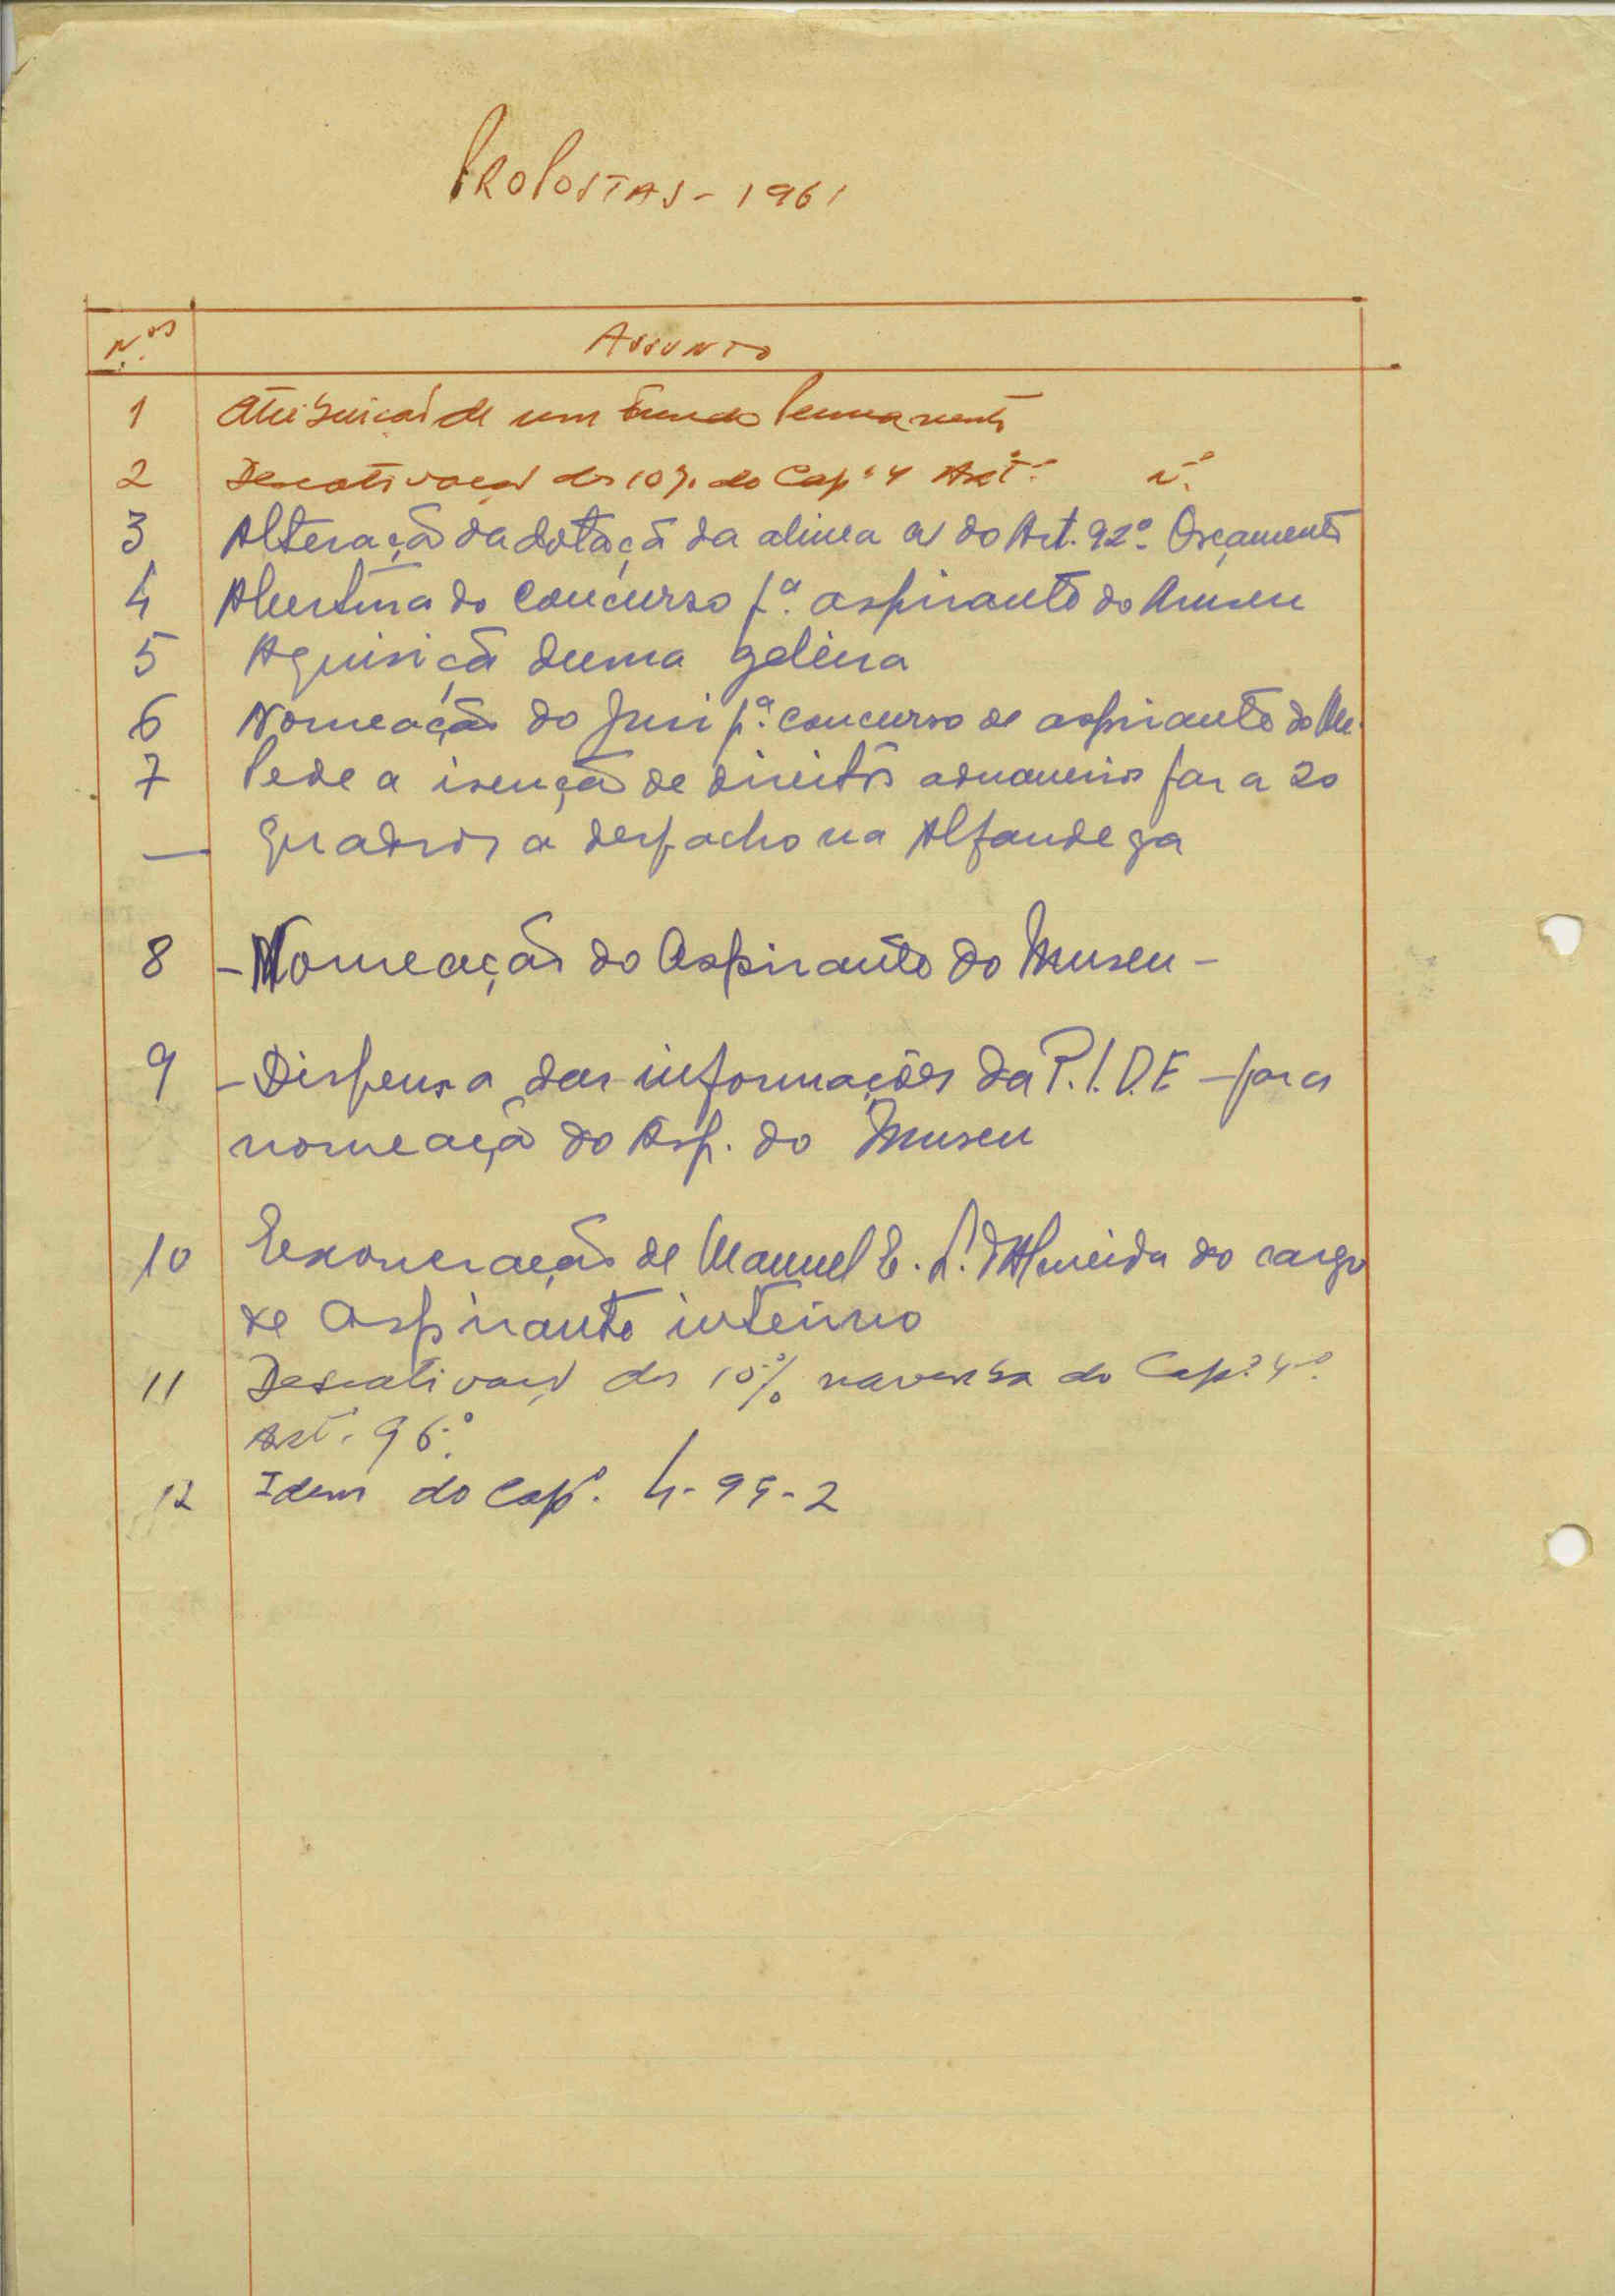 PROPOSTAS - 1961
N.os Assunto
1 Atribuição de um Fundo Permanente
2 Descativação dos 10% do Cap.º 4 Art.º n.º
3 Alteração da dotação da alinea a) do Art. 92º Orçamento
4 Abertura do concurso p.ª aspirante do Museu
5 Aquisição duma geleira
6 Nomeação do Juri p.ª concurso de aspirante do Mu.
7 Pede a isenção de direitos aduaneiros para 20
— Quadros a despacho na Alfandega
8 - Nomeação do Aspirante do Museu -
9 - Dispensa das informações da P.I.D.E - para
nomeação do Asp. do Museu
10 Exoneração de Manuel E. L. d'Almeida do cargo
de Aspirante interino
11 Descativação dos 10% na verba do Cap.º 4.º
Art.º 96.º
12 Idem do Cap.º 4-99-2